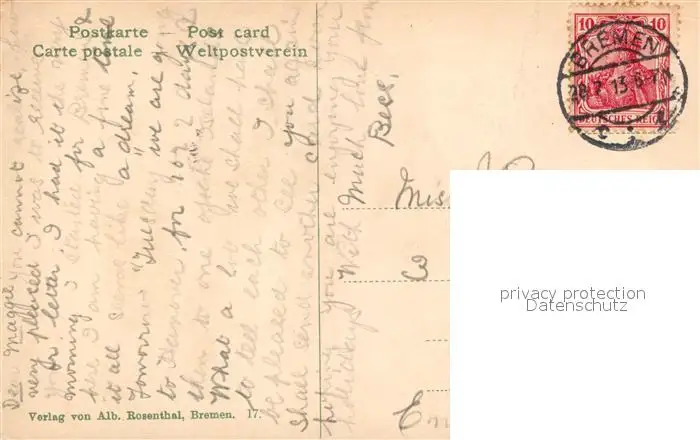 Postkarte Post card
Carte postale Weltpostverein
10 10
BREMEN
28.7.13.6-7N
DEUTSCHES REICH
Dear Maggie you cannot realize how
very pleased I was to receive
yr letter. I had it the very
morning I started for Bremen
here I am having a fine time
it all seems like a dream.
Tomorrow "Tuesday" we are going
to Hannover for 1 or 2 days
then to one of the Islands
What a lot we shall have
to tell each other I shall
be pleased to see you again
shall send another card
hoping you are enjoying your
holidays With Much love from
Bess.
Miss
W
E
privacy protection
Datenschutz
Verlag von Alb. Rosenthal, Bremen. 17.